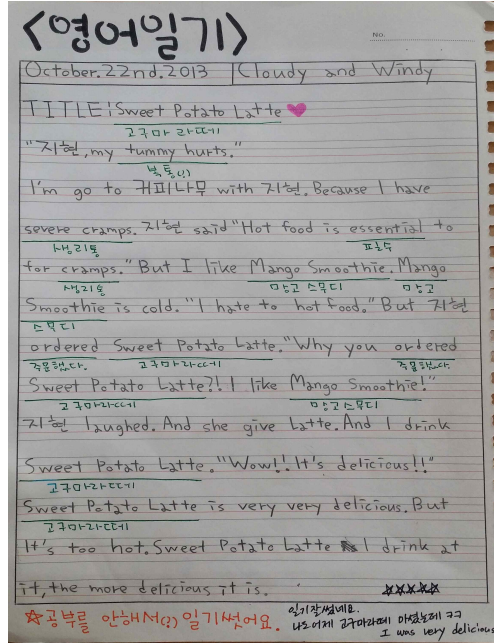 <영어일기>
No.
October.22nd.2013 Cloudy and Windy
TITLE:Sweet Potato Latte
고구마 라떼
"지현, my tummy hurts."
복통(!)
I'm go to 커피나무 with 지현. Because I have
severe cramps. 지현 said "Hot food is essential to
생리통 필수
for cramps." But I like Mango Smoothie. Mango
생리통 망고 스무디 망고
Smoothie is cold. "I hate to hot food." But 지현
스무디
ordered Sweet Potato Latte. "Why you ordered
주문했다. 고구마라떼 주문했다.
Sweet Potato Latte?! I like Mango Smoothie!"
고구마라떼 망고스무디
지현 laughed. And she give Latte. And I drink
Sweet Potato Latte. "Wow!! It's delicious!!"
고구마라떼
Sweet Potato Latte is very very delicious. But
고구마라떼
It's too hot. Sweet Potato Latte I drink at
it, the more delicious it is.
☆공부를 안해서(?) 일기썻어요.
일기잘썼네요.
나도어제 고구마라떼 마셨는데 ㅋㅋ
I was very delicious